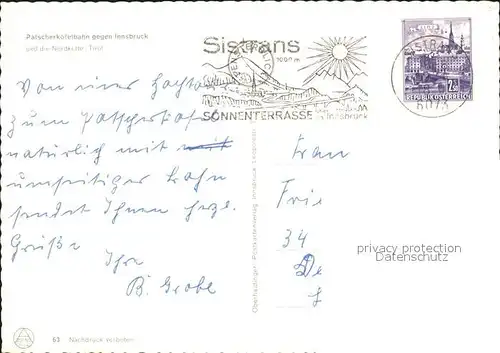 Patscherkofelbahn gegen Innsbruck
und die Nordkette, Tirol
Sistrans
1000 m
SONNENTERRASSE
Innsbruck
2.50
REPUBLIK ÖSTERREICH
6073
Von einer
zum Patscherkofel
natürlich mit mit
umseitiger Bahn
sendet Ihnen herzl.
Grüße
Ihr
B. Grobe
Frau
Frie
34
De
privacy protection
Datenschutz
63 Nachdruck verboten